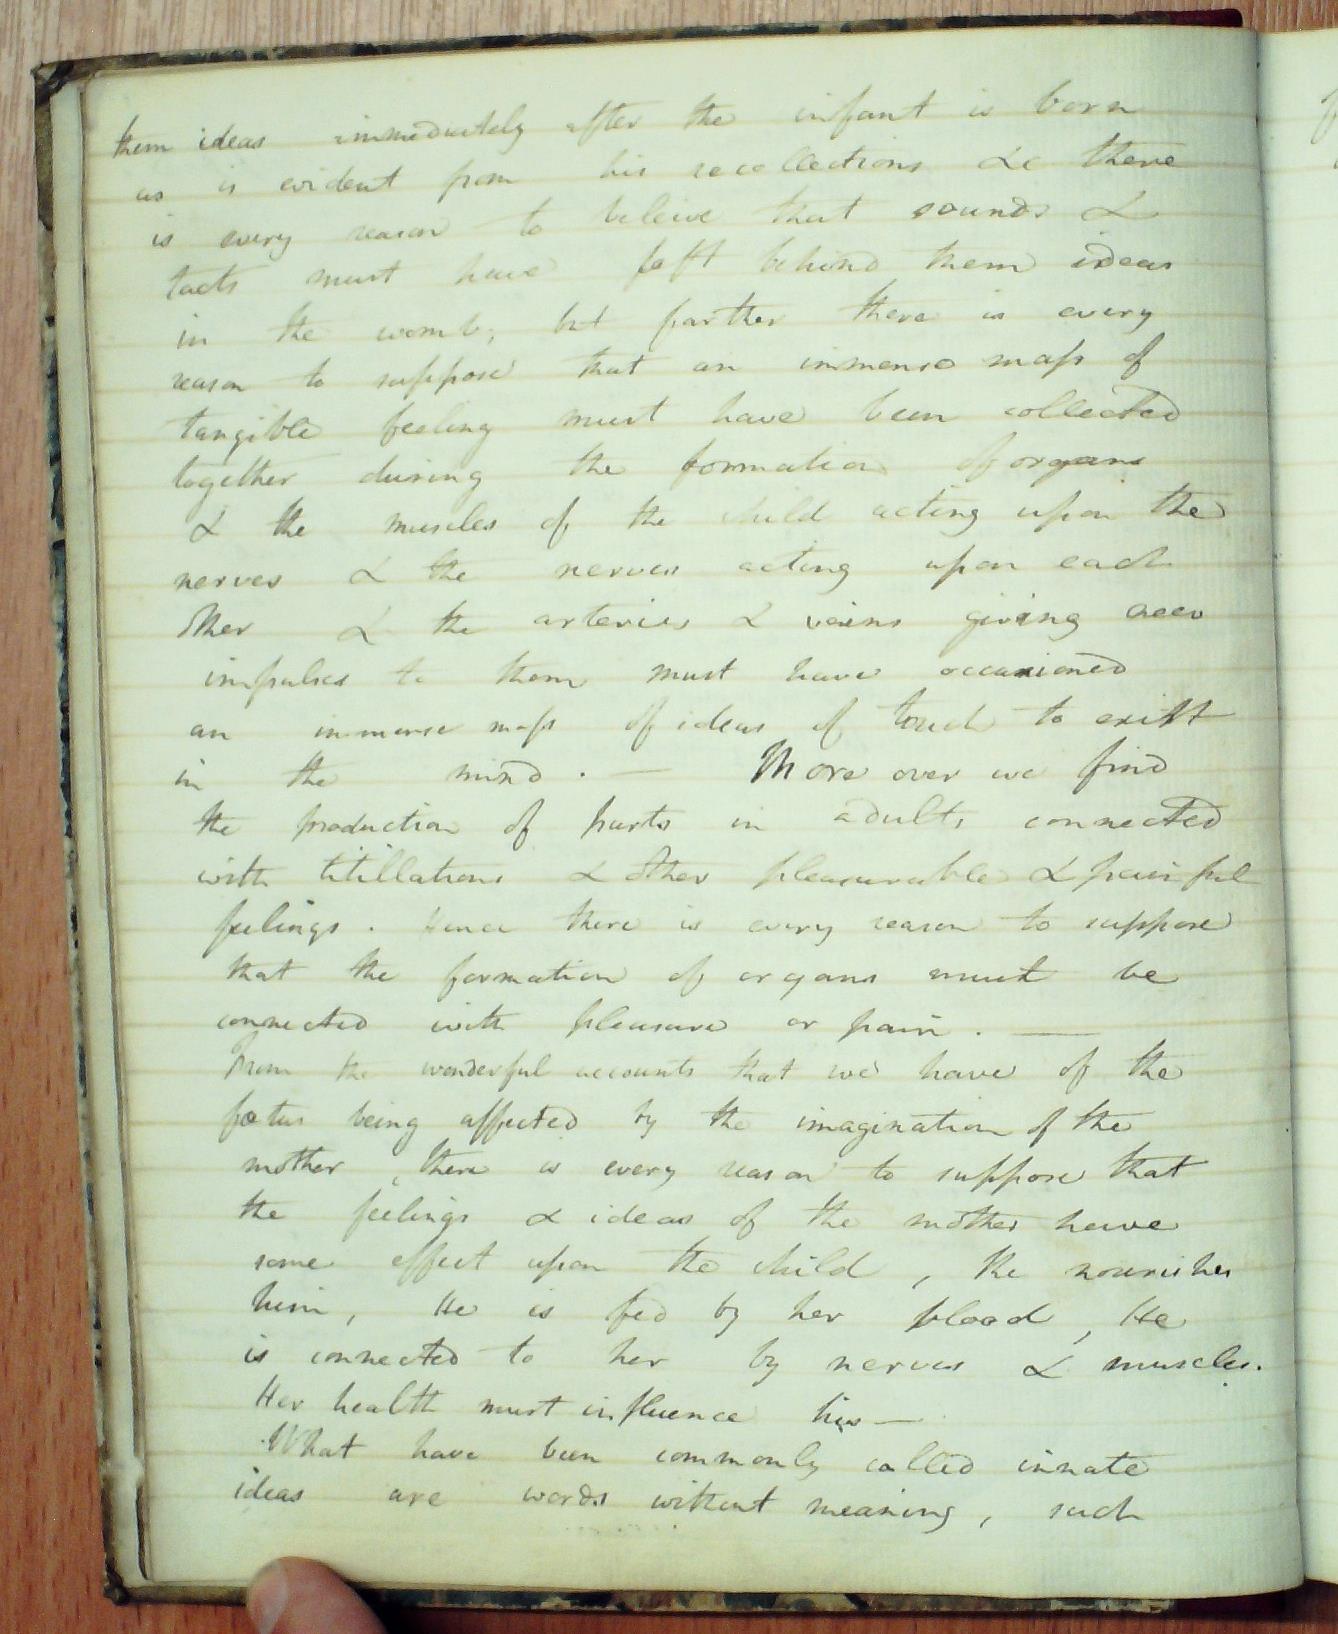 them ideas immediately after the infant is born
as is evident from his recollections &c there
is every reason to beleive that sounds &
tacts must have left behind them ideas
in the womb, but farther there is every
reason to suppose that an immense mass of
tangible feeling must have been collected
together during the formation of organs
& the muscles of the child acting upon the
nerves & the nerves acting upon each
other & the arteries & veins giving new
impulses to them must have occasioned
an immense mass of ideas of touch to exist
in the mind. — More over we find
the production of parts in adults connected
with titillations & other pleasurable & painful
feelings. Hence there is every reason to suppose
that the formation of organs must be
connected with pleasure or pain. —
From the wonderful accounts that we have of the
foetus being affected by the imagination of the
mother, there is every reason to suppose that
the feelings & ideas of the mother have
some effect upon the child, she nourishes
him, He is fed by her blood, He
is connected to her by nerves & muscles.
Her health must influence his —
What have been commonly called innate
ideas are words without meaning, such